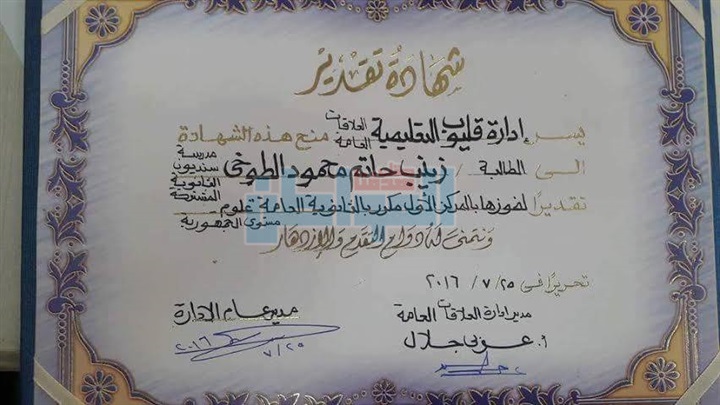 شهادة تقدير
يسر إدارة قليوب التعليمية العلاقات العامة منح هذه الشهادة
الى الطالبة / زينب حاتم محمود الطوخى مدرسة سنديون الثانوية المشتركة
تقديرًا لفوزها بالمركز الأول مكرر بالثانوية العامة علوم مستوى الجمهورية
ونتمنى لها دوام التقدم والازدهار
تحريرًا فى ٢٥ / ٧ / ٢٠١٦
مدير إدارة العلاقات العامة
أ. عزبى جلال
مدير عام الادارة
٢٠١٦
٧/٢٥